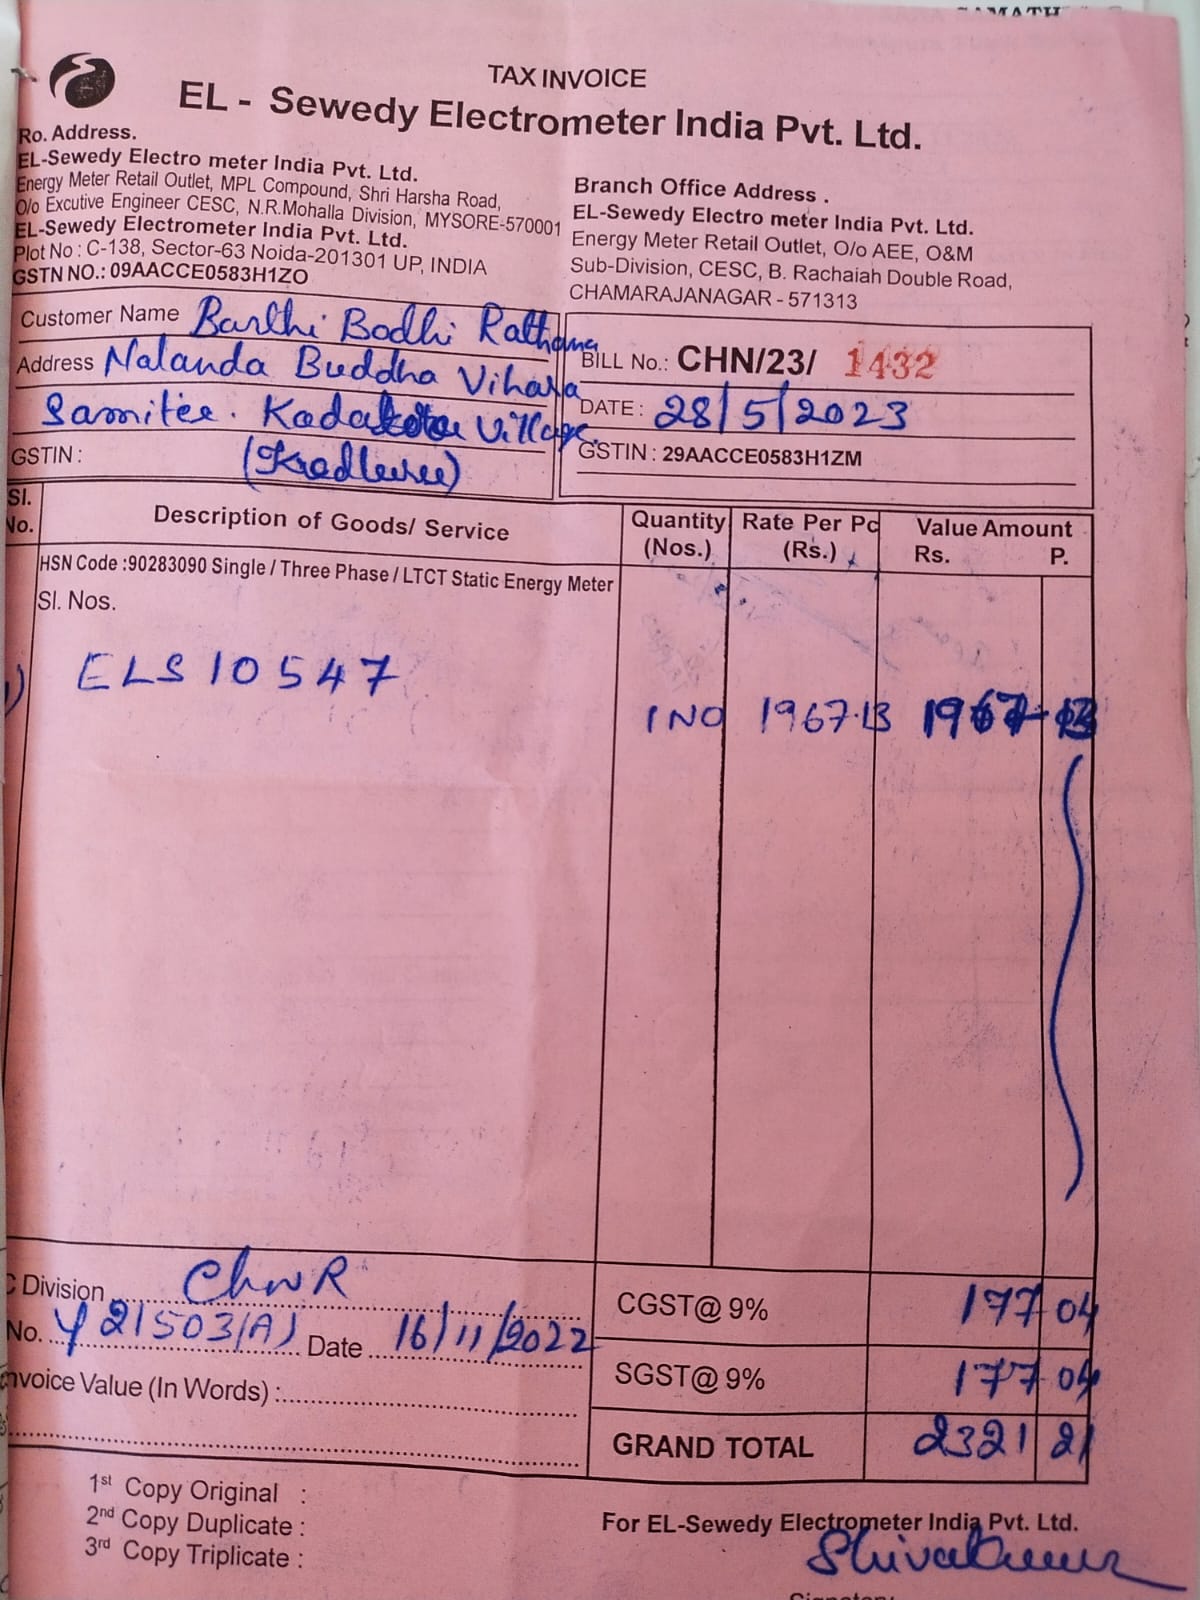 TAX INVOICE
EL - Sewedy Electrometer India Pvt. Ltd.
Ro. Address.
EL-Sewedy Electro meter India Pvt. Ltd.
Energy Meter Retail Outlet, MPL Compound, Shri Harsha Road,
O/o Excutive Engineer CESC, N.R.Mohalla Division, MYSORE-570001
EL-Sewedy Electrometer India Pvt. Ltd.
Plot No : C-138, Sector-63 Noida-201301 UP, INDIA
GSTN NO.: 09AACCE0583H1ZO
Branch Office Address .
EL-Sewedy Electro meter India Pvt. Ltd.
Energy Meter Retail Outlet, O/o AEE, O&M
Sub-Division, CESC, B. Rachaiah Double Road,
CHAMARAJANAGAR - 571313
Customer Name Barthi Bodhi Rathana
Address Nalanda Buddha Vihara
Samitee. Village.
GSTIN :
BILL No.: CHN/23/ 1432
DATE : 28/5/2023
GSTIN : 29AACCE0583H1ZM
Sl. No. Description of Goods/ Service Quantity (Nos.) Rate Per Pc (Rs.) Value Amount Rs. P.
HSN Code :90283090 Single / Three Phase / LTCT Static Energy Meter
Sl. Nos.
1) ELS 10547 1 NO 1967.13 1967 13
C Division ChnR
No. Y21503(A) Date 16/11/2022
Invoice Value (In Words) :
CGST@ 9% 177 04
SGST@ 9% 177 04
GRAND TOTAL 2321 21
1st Copy Original :
2nd Copy Duplicate :
3rd Copy Triplicate :
For EL-Sewedy Electrometer India Pvt. Ltd.
Shivakumar